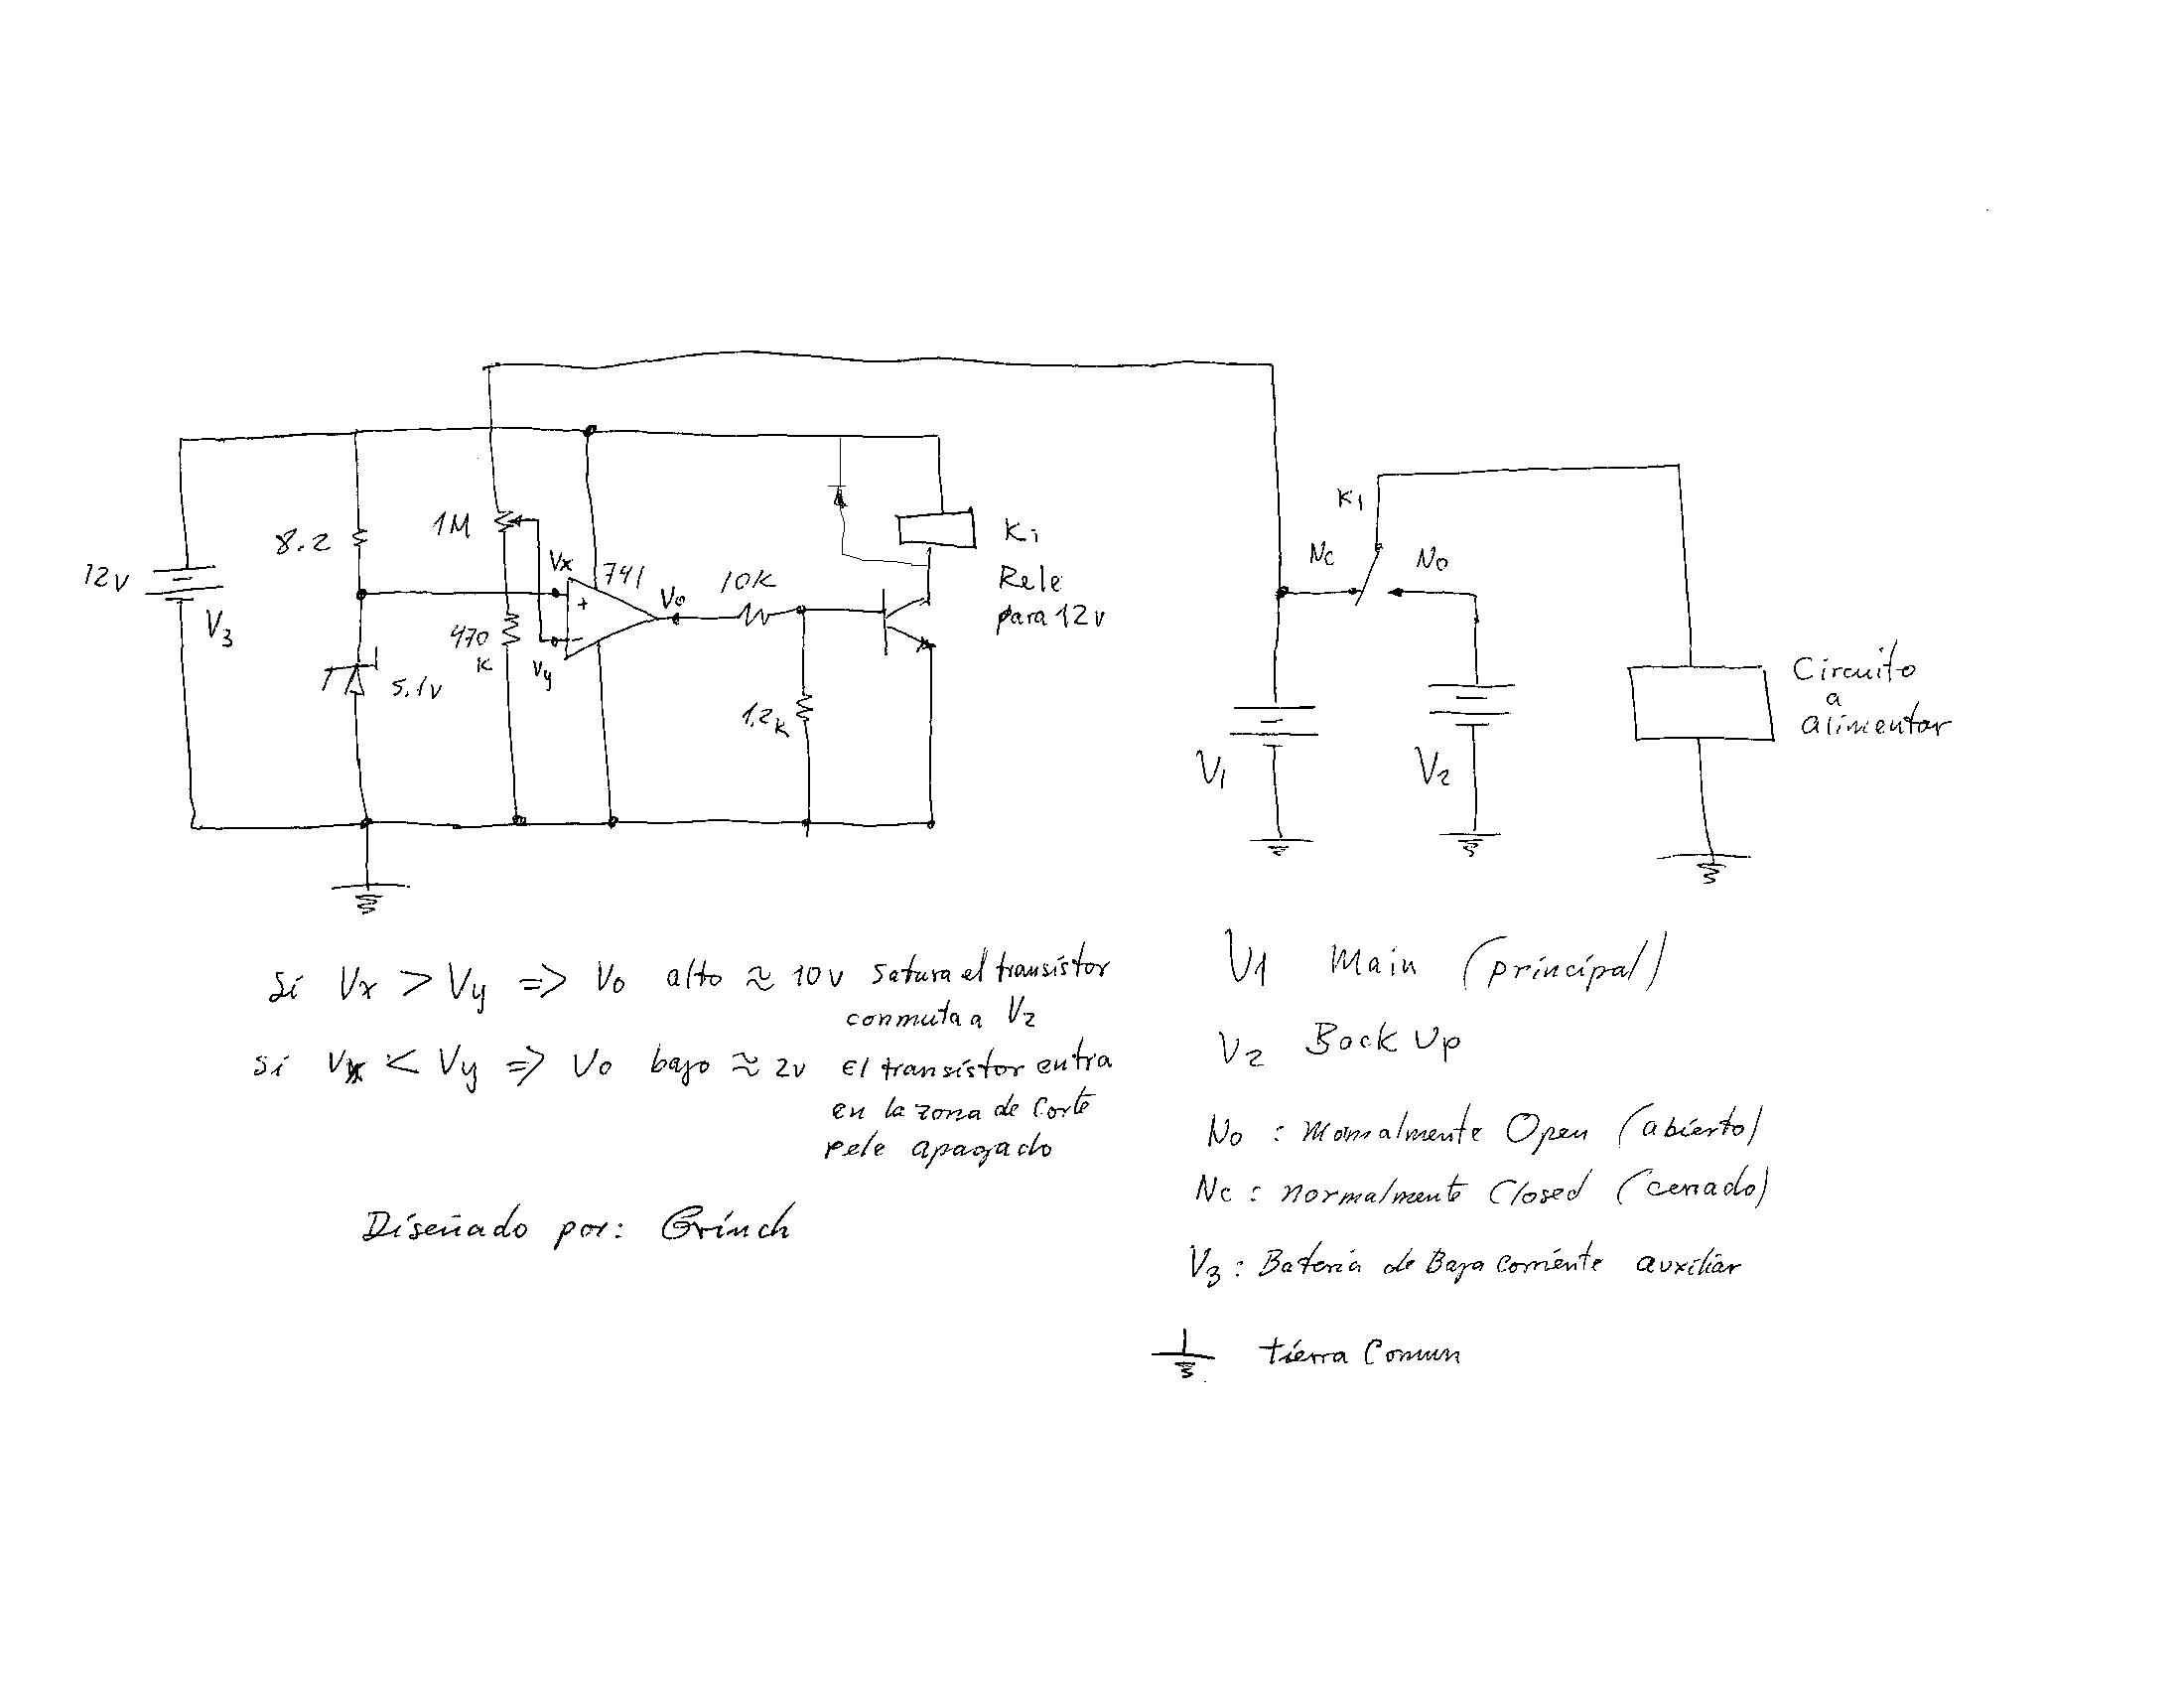 12V
V3
8.2
5.1V
1M
470
K
Vx
Vy
+
-
741
Vo
10K
1.2K
K1
Rele
para 12v
K1
Nc
No
V1
V2
Circuito
a
alimentar
Si Vx > Vy => Vo alto ≈ 10v Satura el transistor
conmuta a V2
Si Vx < Vy => Vo bajo ≈ 2v El transistor entra
en la zona de Corte
rele apagado
Diseñado por: Grinch
V1 Main (principal)
V2 Back Up
No : Normalmente Open (abierto)
Nc : normalmente Closed (cerrado)
V3 : Bateria de Baja corriente auxiliar
tierra Comun